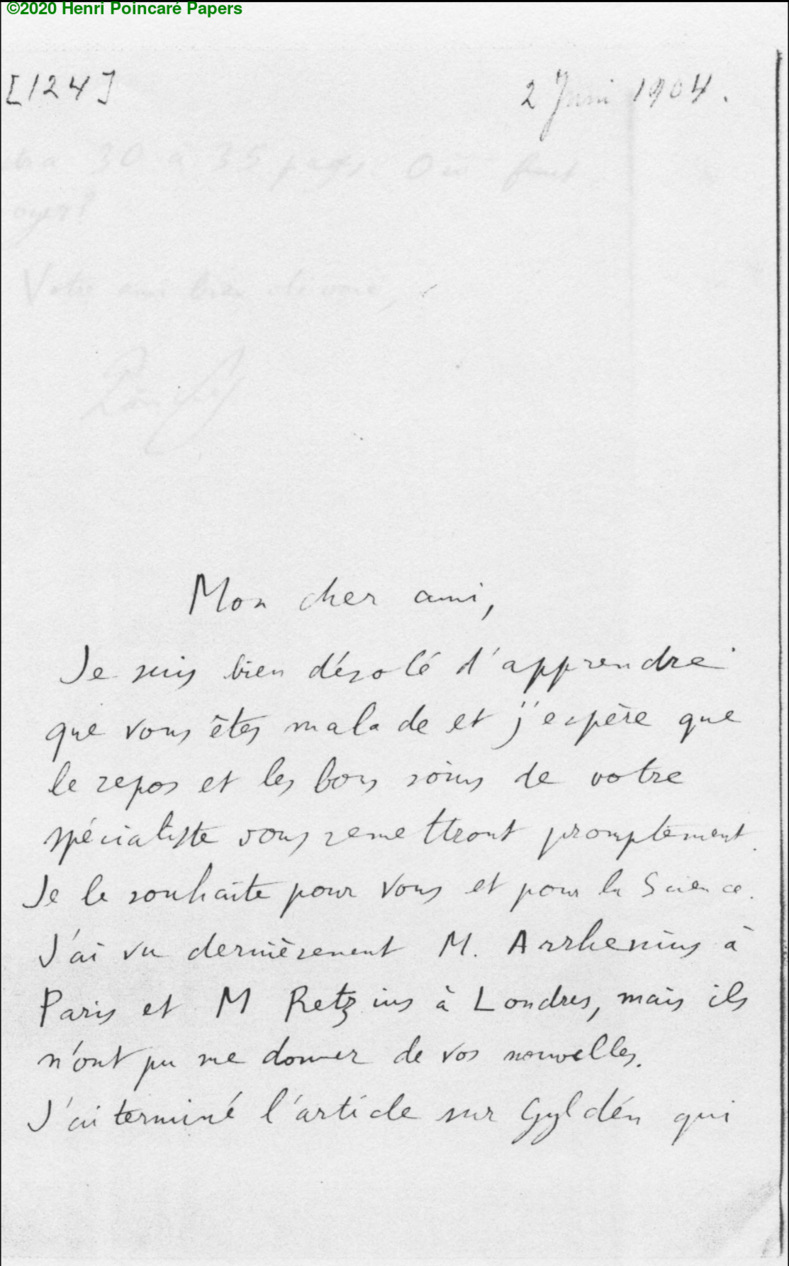 ©2020 Henri Poincaré Papers
[124]
2 Juni 1904.
30 à 35 pages. Où faut
Mon cher ami,
Je suis bien désolé d'apprendre
que vous êtes malade et j'espère que
le repos et les bons soins de votre
spécialiste vous remettront promptement.
Je le souhaite pour vous et pour la Science.
J'ai vu dernièrement M. Arrhenius à
Paris et M Retzius à Londres, mais ils
n'ont pu me donner de vos nouvelles.
J'ai terminé l'article sur Gyldén qui